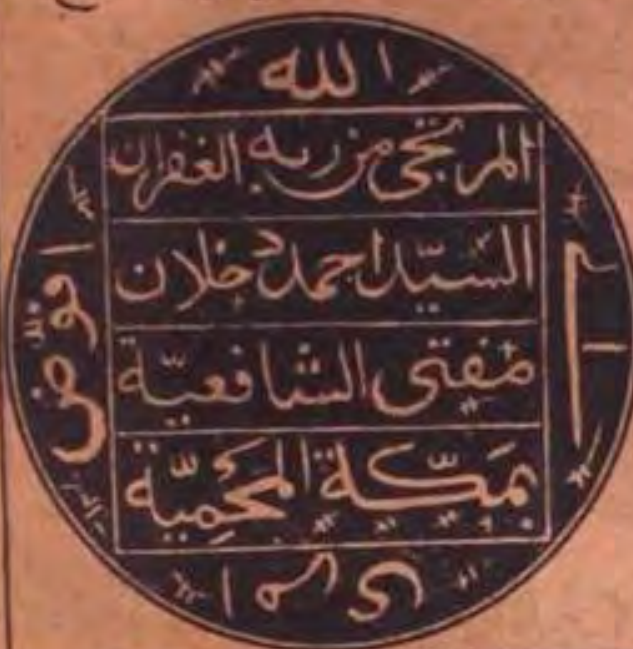 الله
المرتجى من ربه الغفران
السيّد احمد دحلان
مفتى الشافعيّة
بمكّة المحميّة
افوّض
امرى
الى